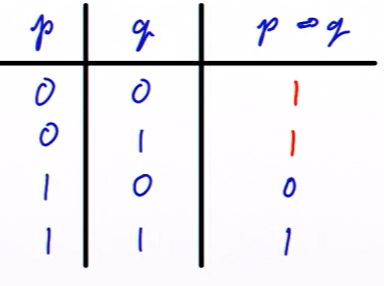 p q p ⇒ q
0 0 1
0 1 1
1 0 0
1 1 1